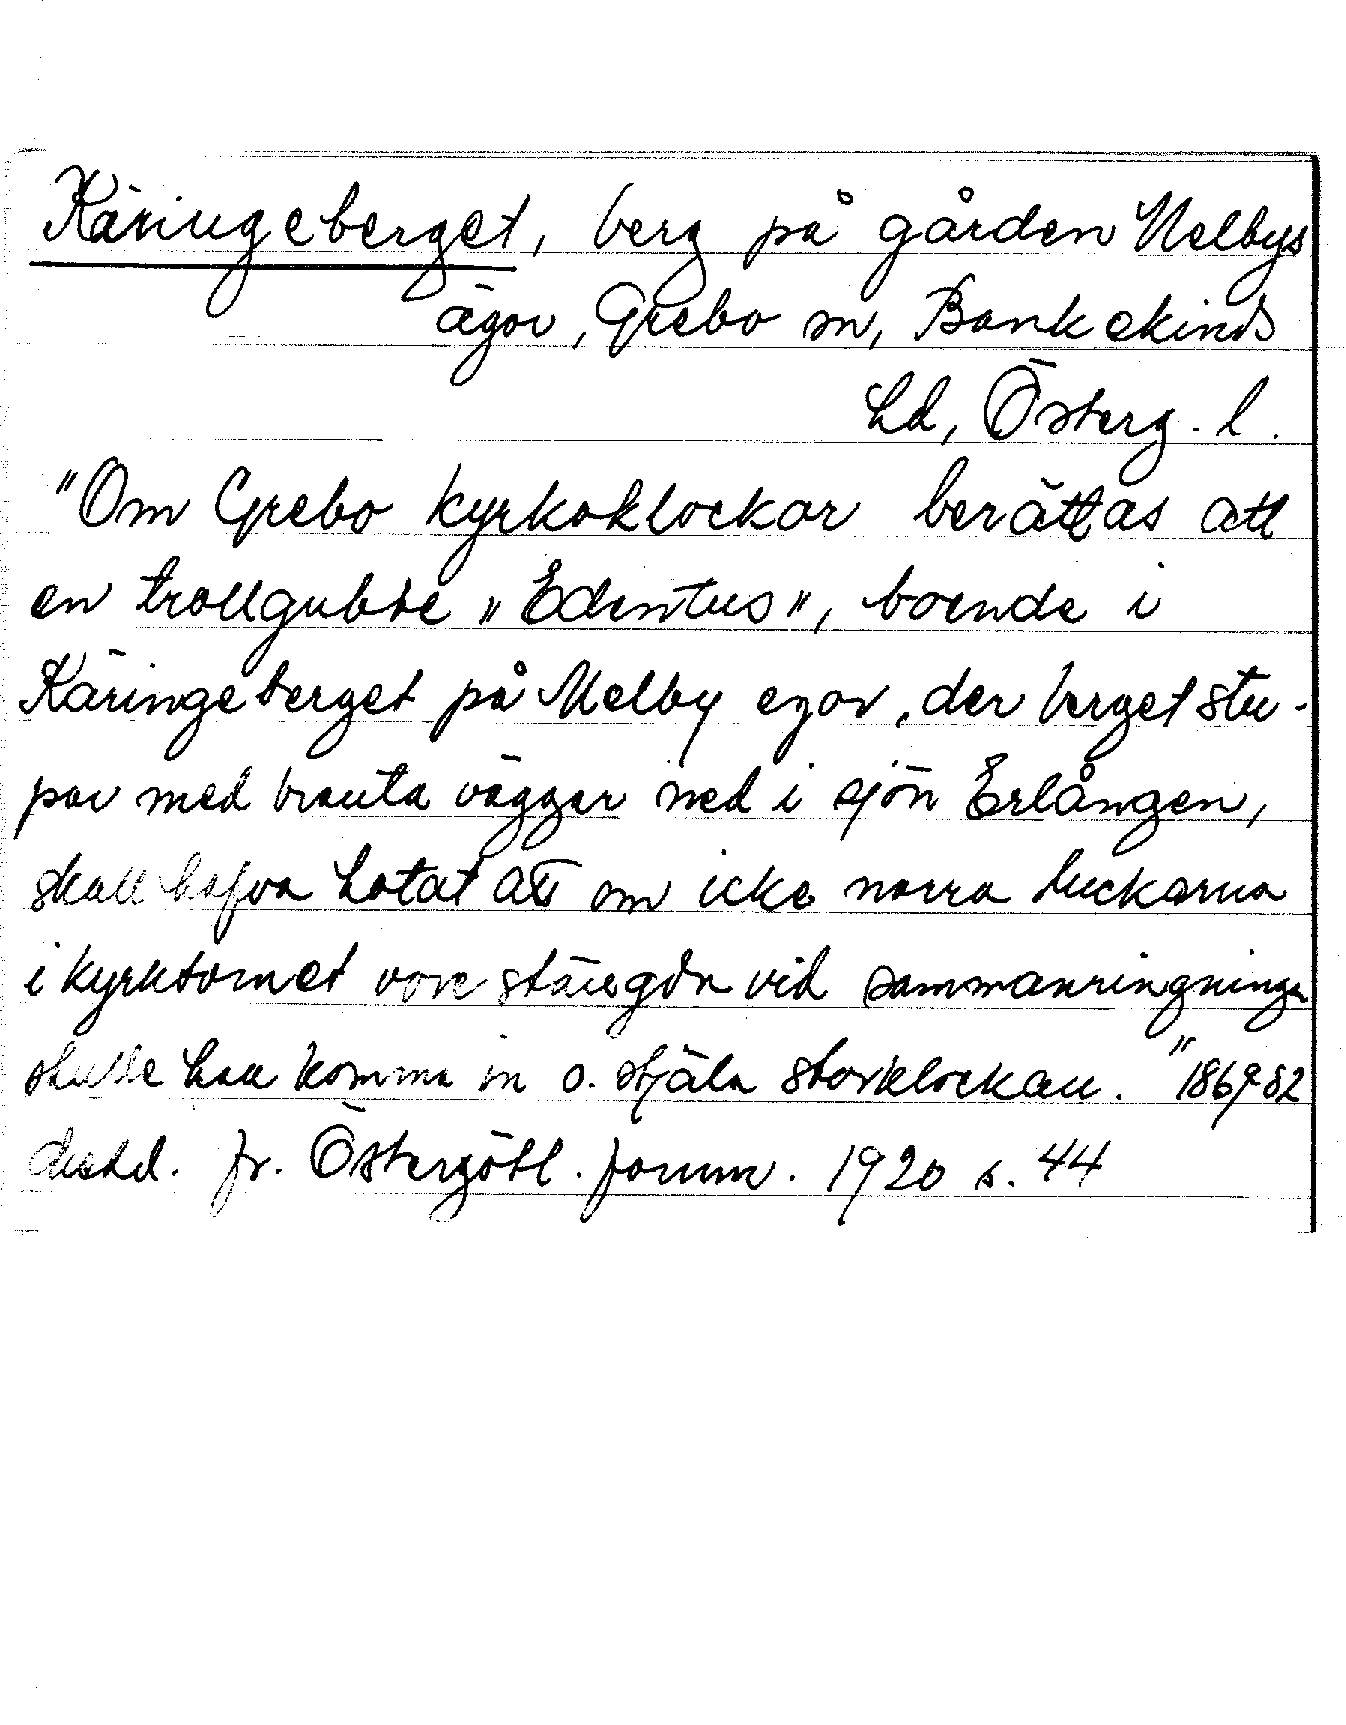 Käringeberget, berg på gården Melbys
ägor, Grebo sn, Bankekinds
hd, Österg. l.
"Om Grebo kyrkoklockor berättas att
en trollgubbe „Edentus", boende i
Käringeberget på Melby egor, der berget stu-
par med branta väggar ned i sjön Erlången,
skall hafva hotat att om icke norra luckorna
i kyrktornet vore stängda vid sammanringningen
skulle han komma in o. stjäla storklockan." 1869-82
Östergötl. fornm. 1920 s. 44